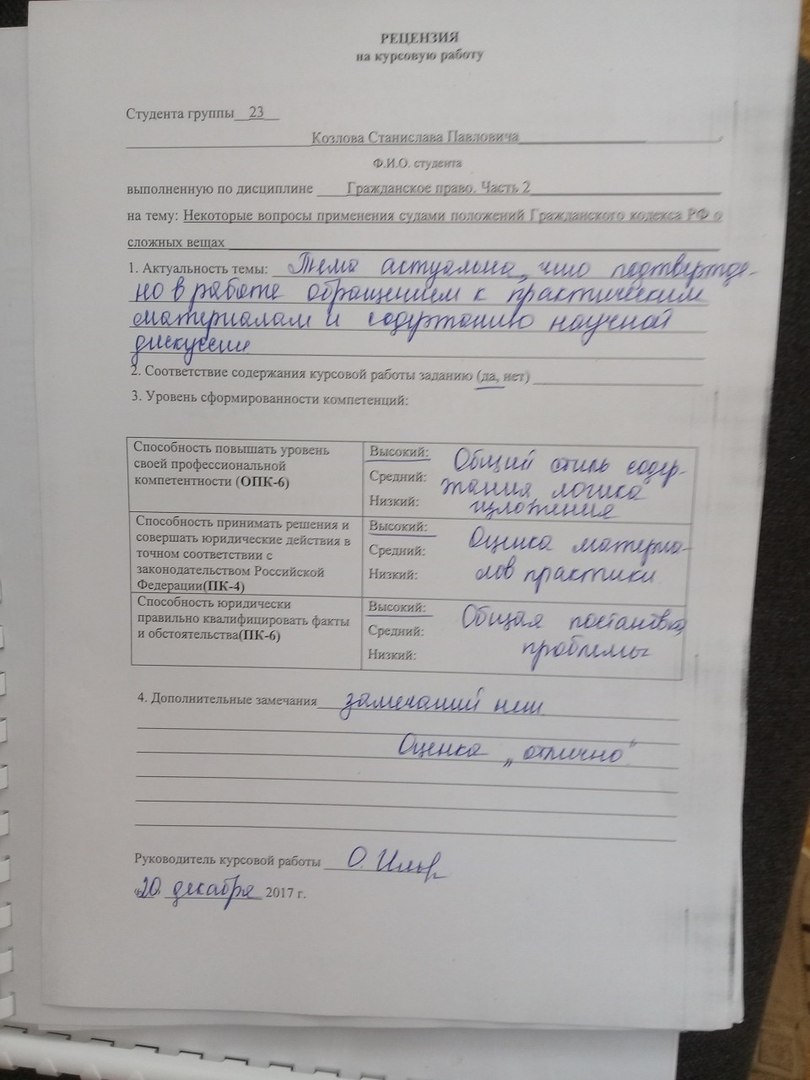 РЕЦЕНЗИЯ
на курсовую работу
Студента группы 23
Козлова Станислава Павловича
Ф.И.О. студента
выполненную по дисциплине Гражданское право. Часть 2
на тему: Некоторые вопросы применения судами положений Гражданского кодекса РФ о
сложных вещах
1. Актуальность темы: Тема актуальна, что подтвержде-
но в работе обращением к практическим
материалам и содержанию научной
дискуссии
2. Соответствие содержания курсовой работы заданию (да, нет)
3. Уровень сформированности компетенций:
Способность повышать уровень
своей профессиональной
компетентности (ОПК-6)
Высокий: Общий стиль содер-
Средний: жания логика
Низкий: изложения
Способность принимать решения и
совершать юридические действия в
точном соответствии с
законодательством Российской
Федерации(ПК-4)
Высокий: Оценка материа-
Средний: лов практики
Низкий:
Способность юридически
правильно квалифицировать факты
и обстоятельства(ПК-6)
Высокий: Общая постановка
Средний: проблемы
Низкий:
4. Дополнительные замечания замечаний нет
Оценка „отлично"
Руководитель курсовой работы О.
«20 декабря 2017 г.